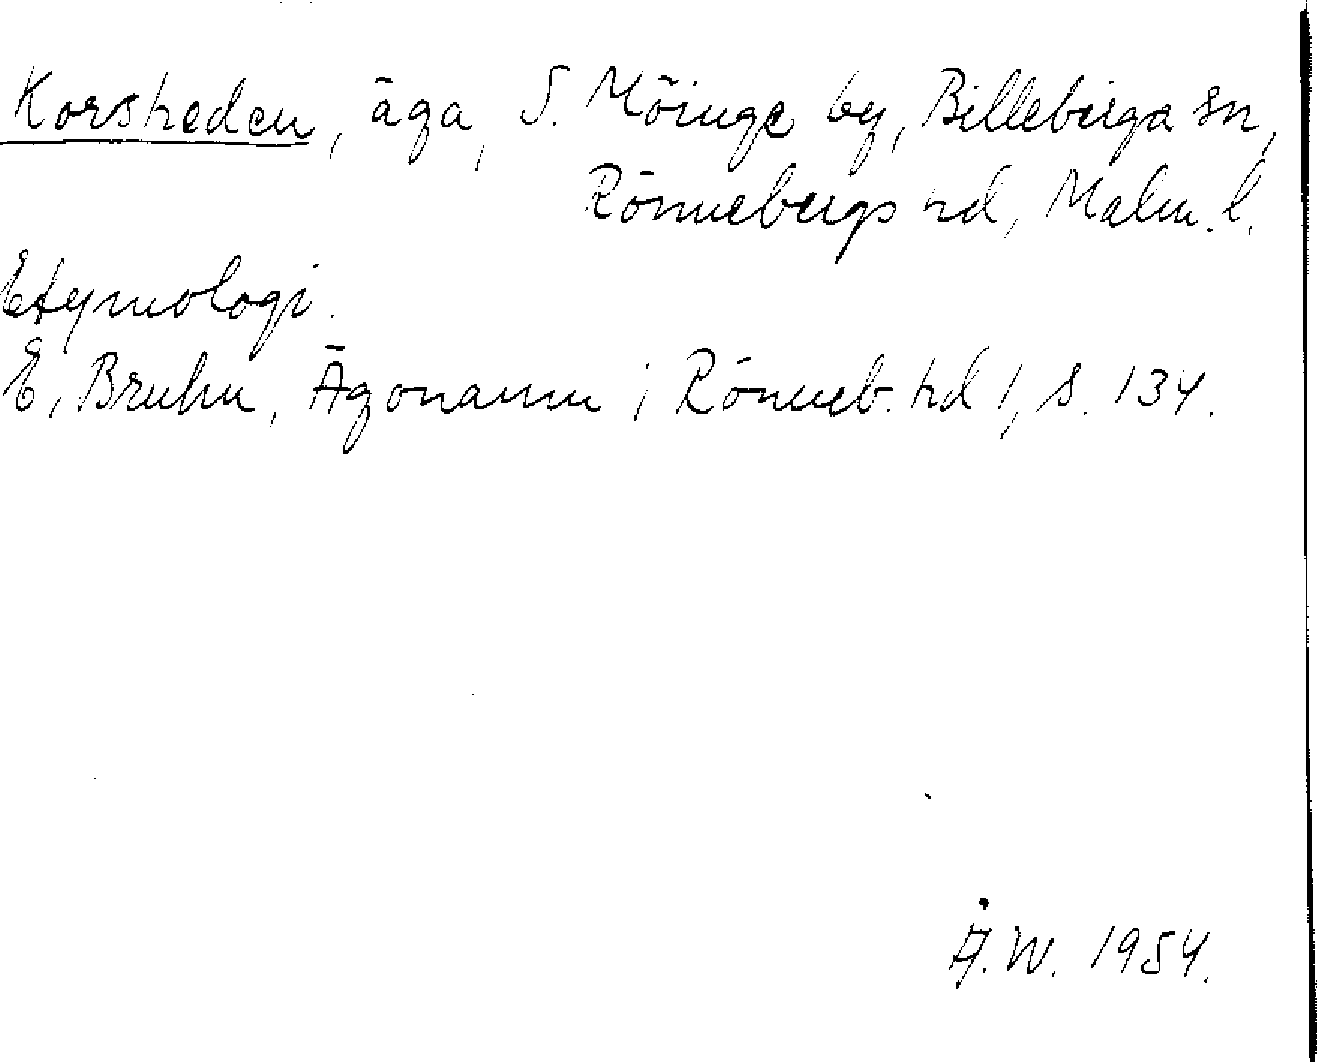 Korsheden, äga, S. Möinge by, Billeberga sn,
Rönnebergs hd, Malm. l.
Etymologi.
E. Bruhn, Ägonamn i Rönneb. hd 1, s. 134.
Å.W. 1954.